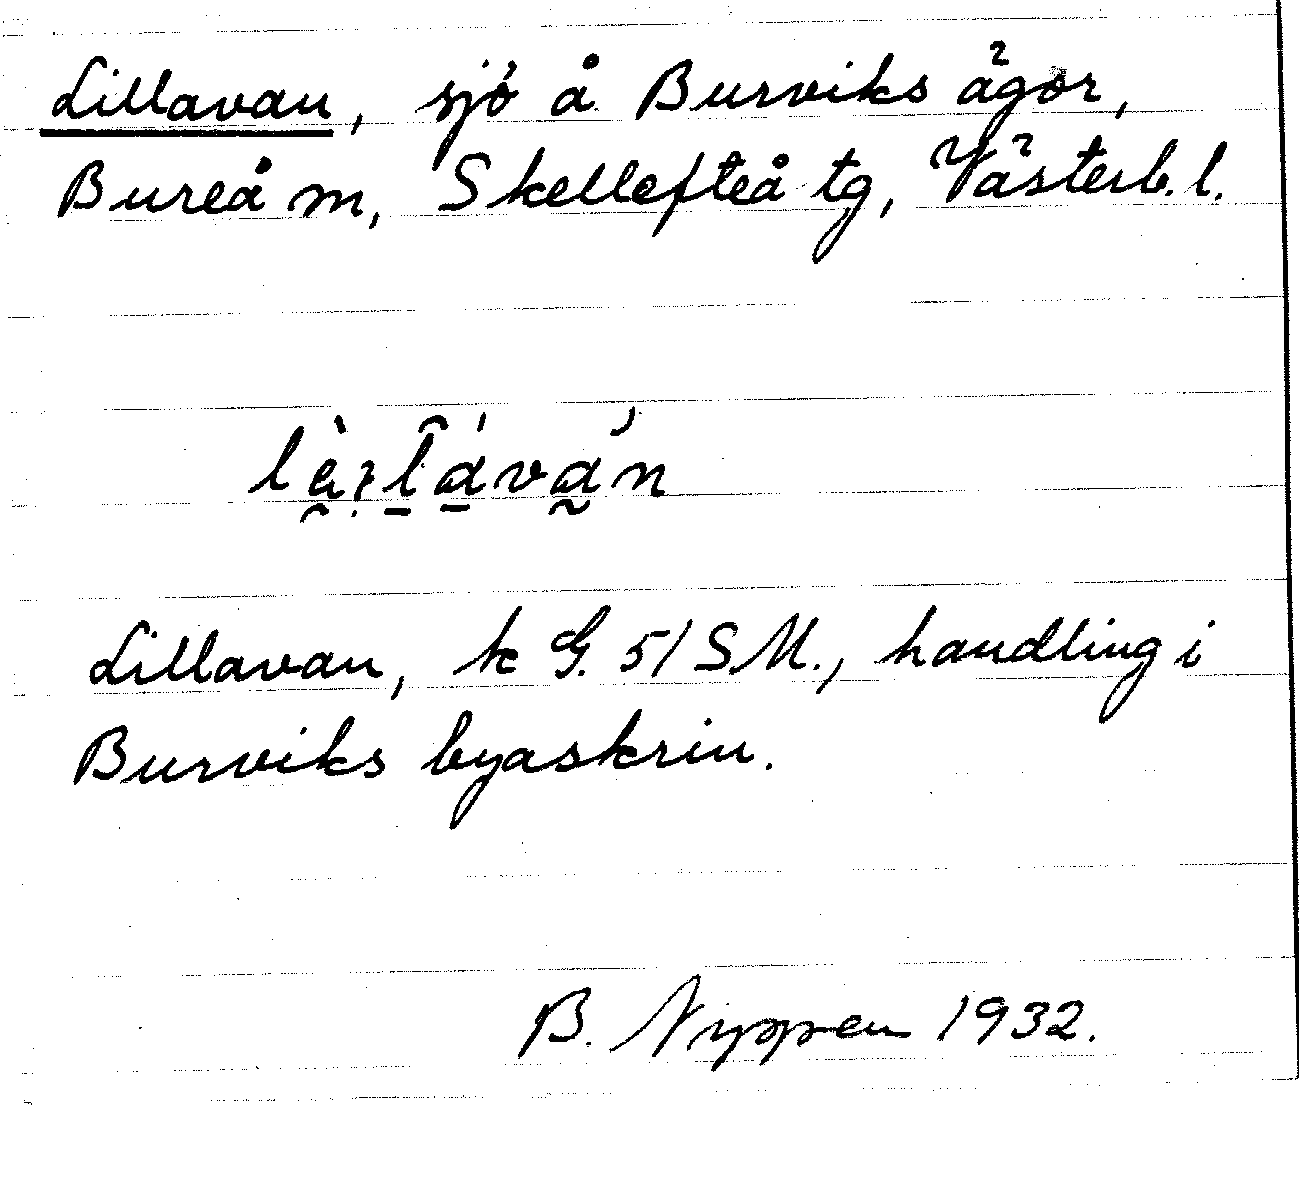 Lillavan, sjö å Burviks ägor,
Bureå m, Skellefteå tg, Västerb. l.
Lillavan, k G. 51 S M., handling i
Burviks byaskrin.
B. Nyppen 1932.